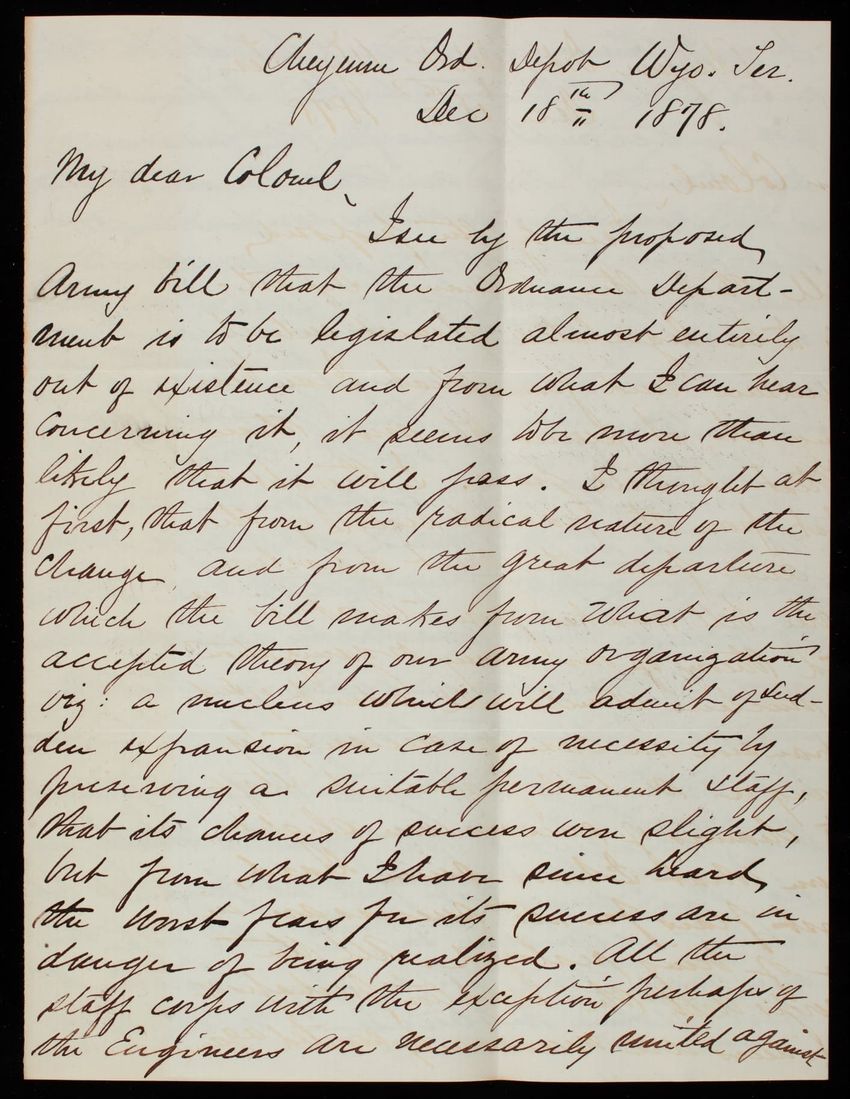 Cheyenne Ord. Depot Wyo. Ter.
Dec 18th 1878.
My dear Colonel,
I see by the proposed
Army bill that the Ordnance Depart-
ment is to be legislated almost entirely
out of existence and from what I can hear
concerning it, it seems to be more than
likely that it will pass. I thought at
first, that from the radical nature of the
change, and from the great departure
which the bill makes from what is the
accepted theory of our army organization
viz: a nucleus which will admit of sud-
den expansion in case of necessity by
preserving a suitable permanent staff,
that its chances of success were slight,
but from what I have since heard,
the worst fears for its success are in
danger of being realized. All the
staff corps with the exception perhaps of
the Engineers are necessarily united against